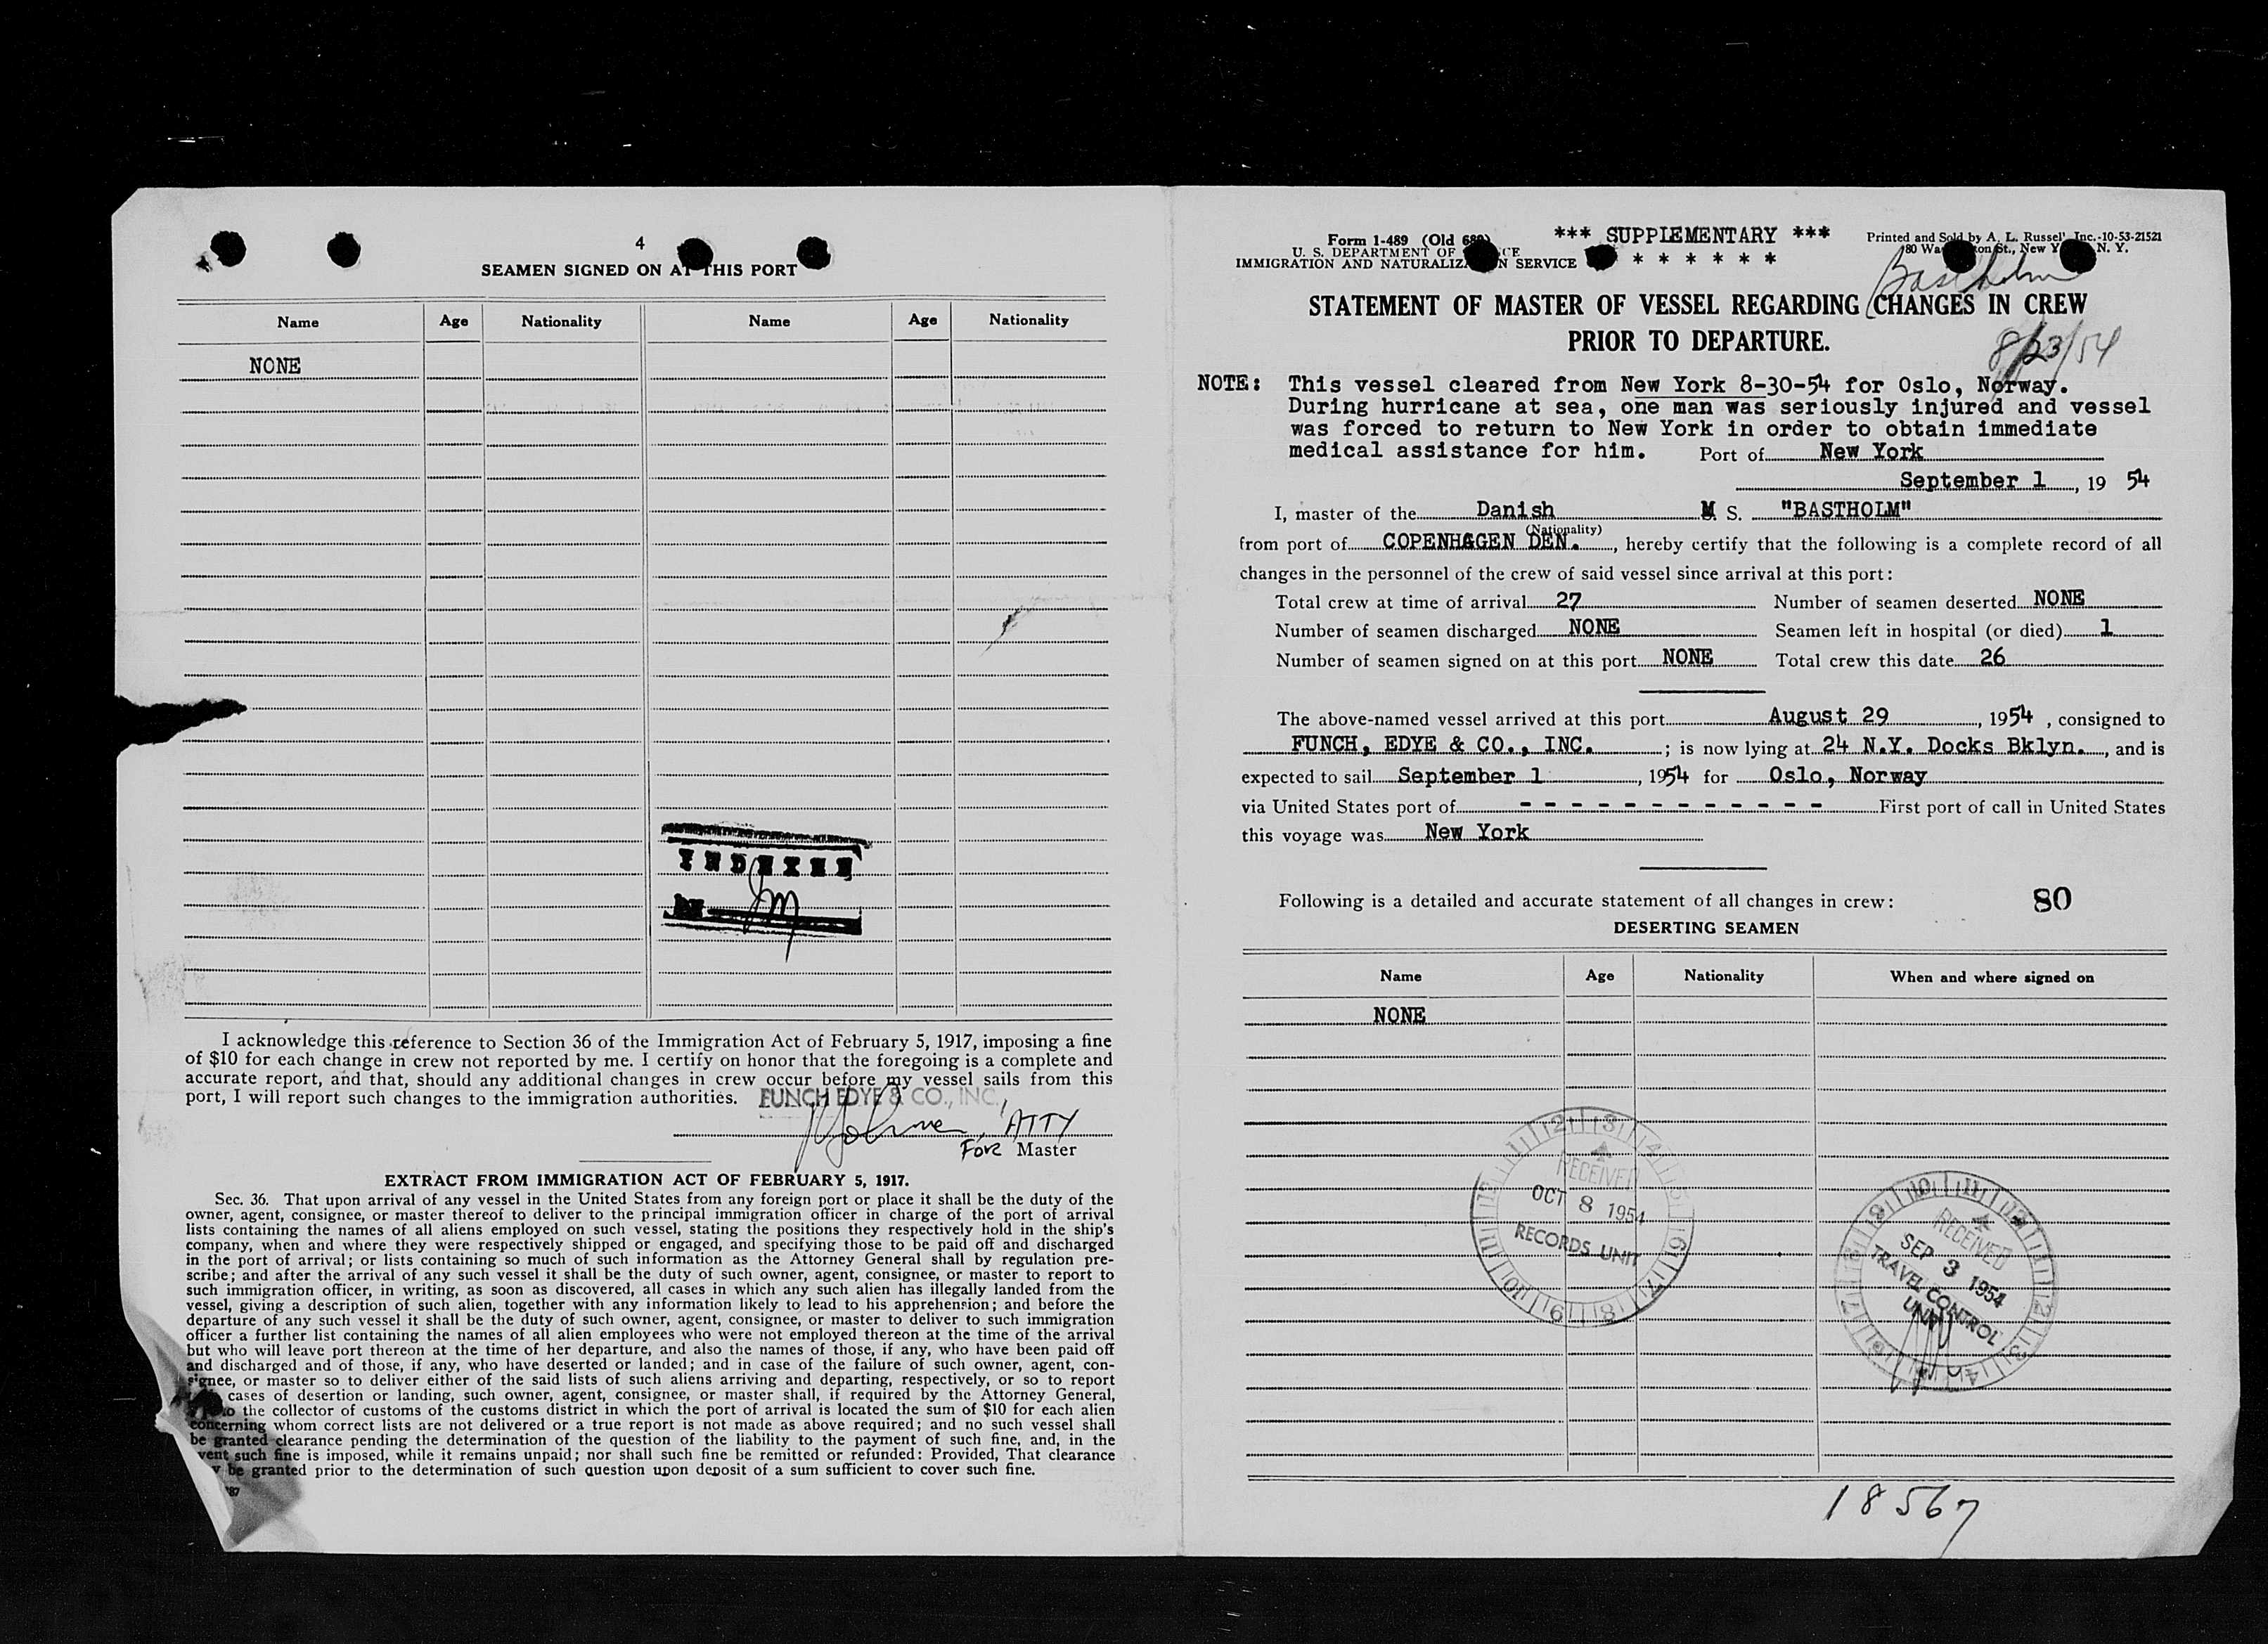 4
SEAMEN SIGNED ON AT THIS PORT
Name Age Nationality Name Age Nationality
NONE
INDEXED
I acknowledge this reference to Section 36 of the Immigration Act of February 5, 1917, imposing a fine
of $10 for each change in crew not reported by me. I certify on honor that the foregoing is a complete and
accurate report, and that, should any additional changes in crew occur before my vessel sails from this
port, I will report such changes to the immigration authorities. FUNCH EDYE & CO., INC.
ATTY
FOR Master
EXTRACT FROM IMMIGRATION ACT OF FEBRUARY 5, 1917.
Sec. 36. That upon arrival of any vessel in the United States from any foreign port or place it shall be the duty of the
owner, agent, consignee, or master thereof to deliver to the principal immigration officer in charge of the port of arrival
lists containing the names of all aliens employed on such vessel, stating the positions they respectively hold in the ship's
company, when and where they were respectively shipped or engaged, and specifying those to be paid off and discharged
in the port of arrival; or lists containing so much of such information as the Attorney General shall by regulation pre-
scribe; and after the arrival of any such vessel it shall be the duty of such owner, agent, consignee, or master to report to
such immigration officer, in writing, as soon as discovered, all cases in which any such alien has illegally landed from the
vessel, giving a description of such alien, together with any information likely to lead to his apprehension; and before the
departure of any such vessel it shall be the duty of such owner, agent, consignee, or master to deliver to such immigration
officer a further list containing the names of all alien employees who were not employed thereon at the time of the arrival
but who will leave port thereon at the time of her departure, and also the names of those, if any, who have been paid off
and discharged and of those, if any, who have deserted or landed; and in case of the failure of such owner, agent, con-
signee, or master so to deliver either of the said lists of such aliens arriving and departing, respectively, or so to report
cases of desertion or landing, such owner, agent, consignee, or master shall, if required by the Attorney General,
to the collector of customs of the customs district in which the port of arrival is located the sum of $10 for each alien
concerning whom correct lists are not delivered or a true report is not made as above required; and no such vessel shall
be granted clearance pending the determination of the question of the liability to the payment of such fine, and, in the
event such fine is imposed, while it remains unpaid; nor shall such fine be remitted or refunded: Provided, That clearance
be granted prior to the determination of such question upon deposit of a sum sufficient to cover such fine.
Form 1-489 (Old 689) *** SUPPLEMENTARY *** Printed and Sold by A. L. Russell Inc.-10-53-21521
U. S. DEPARTMENT OF * * * * * * 180 St., New Y N. Y.
IMMIGRATION AND NATURALIZATION SERVICE
Bastholm
STATEMENT OF MASTER OF VESSEL REGARDING CHANGES IN CREW
PRIOR TO DEPARTURE.
8/23/54
NOTE: This vessel cleared from New York 8-30-54 for Oslo, Norway.
During hurricane at sea, one man was seriously injured and vessel
was forced to return to New York in order to obtain immediate
medical assistance for him. Port of New York
September 1, 19 54
I, master of the Danish M S. "BASTHOLM"
(Nationality)
from port of COPENHAGEN DEN., hereby certify that the following is a complete record of all
changes in the personnel of the crew of said vessel since arrival at this port:
Total crew at time of arrival 27 Number of seamen deserted NONE
Number of seamen discharged NONE Seamen left in hospital (or died) 1
Number of seamen signed on at this port NONE Total crew this date 26
The above-named vessel arrived at this port August 29, 1954, consigned to
FUNCH, EDYE & CO., INC.; is now lying at 24 N.Y. Docks Bklyn., and is
expected to sail September 1, 1954 for Oslo, Norway
via United States port of - - - - - - - - - - - - First port of call in United States
this voyage was New York
Following is a detailed and accurate statement of all changes in crew: 80
DESERTING SEAMEN
Name Age Nationality When and where signed on
NONE
RECEIVED
OCT 8 1954
RECORDS UNIT
RECEIVED
SEP 3 1954
TRAVEL CONTROL
UNIT
18567